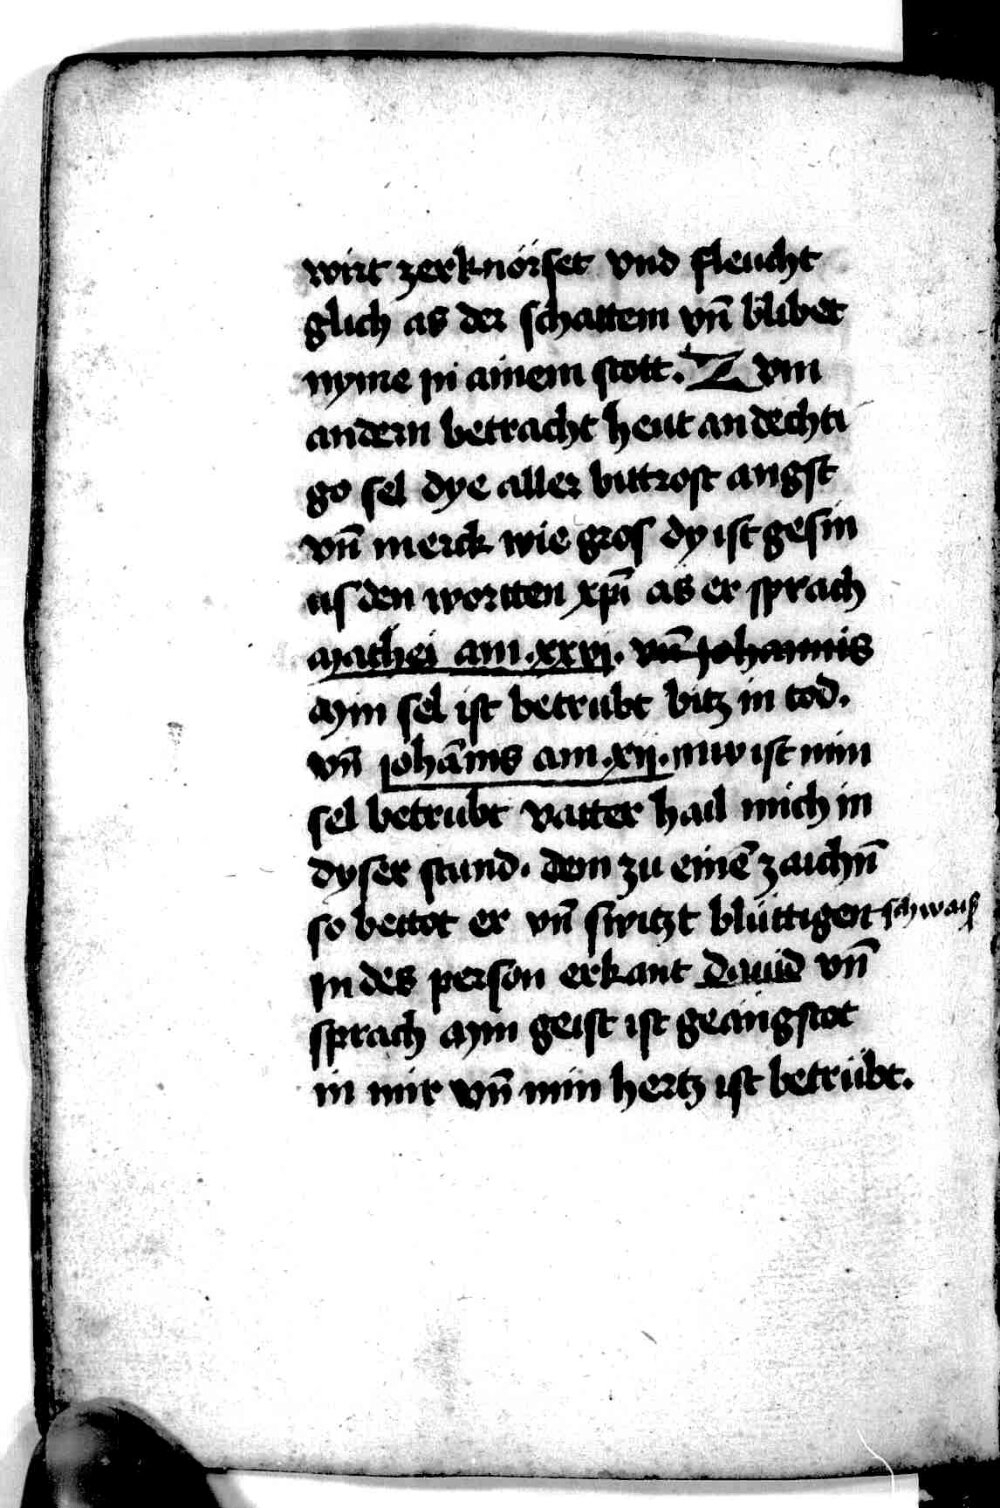 wirt zerknörset vnd fleucht
glich as der schattem vn̄ blibet
nyme in ainem stott. Zvm
andern betracht heut andechti
go sel dye aller bittrost angst
vn̄ merck wie gros dy ist gesin
us den wortten xpī as er sprach
Mathei am .xxvj. vn̄ johannis
Myin sel ist betrubt bitz in tod.
vn̄ johānis am .xij. nuv ist min
sel betrubt vatter hail mich in
dyser stund. dem zu einē zaichn̄
so bettot er vn̄ switzt blüttigen schwais
In des person erkant Dauid vn̄
sprach Myin geist ist geängstot
in mir vn̄ min hertz ist betrübt.